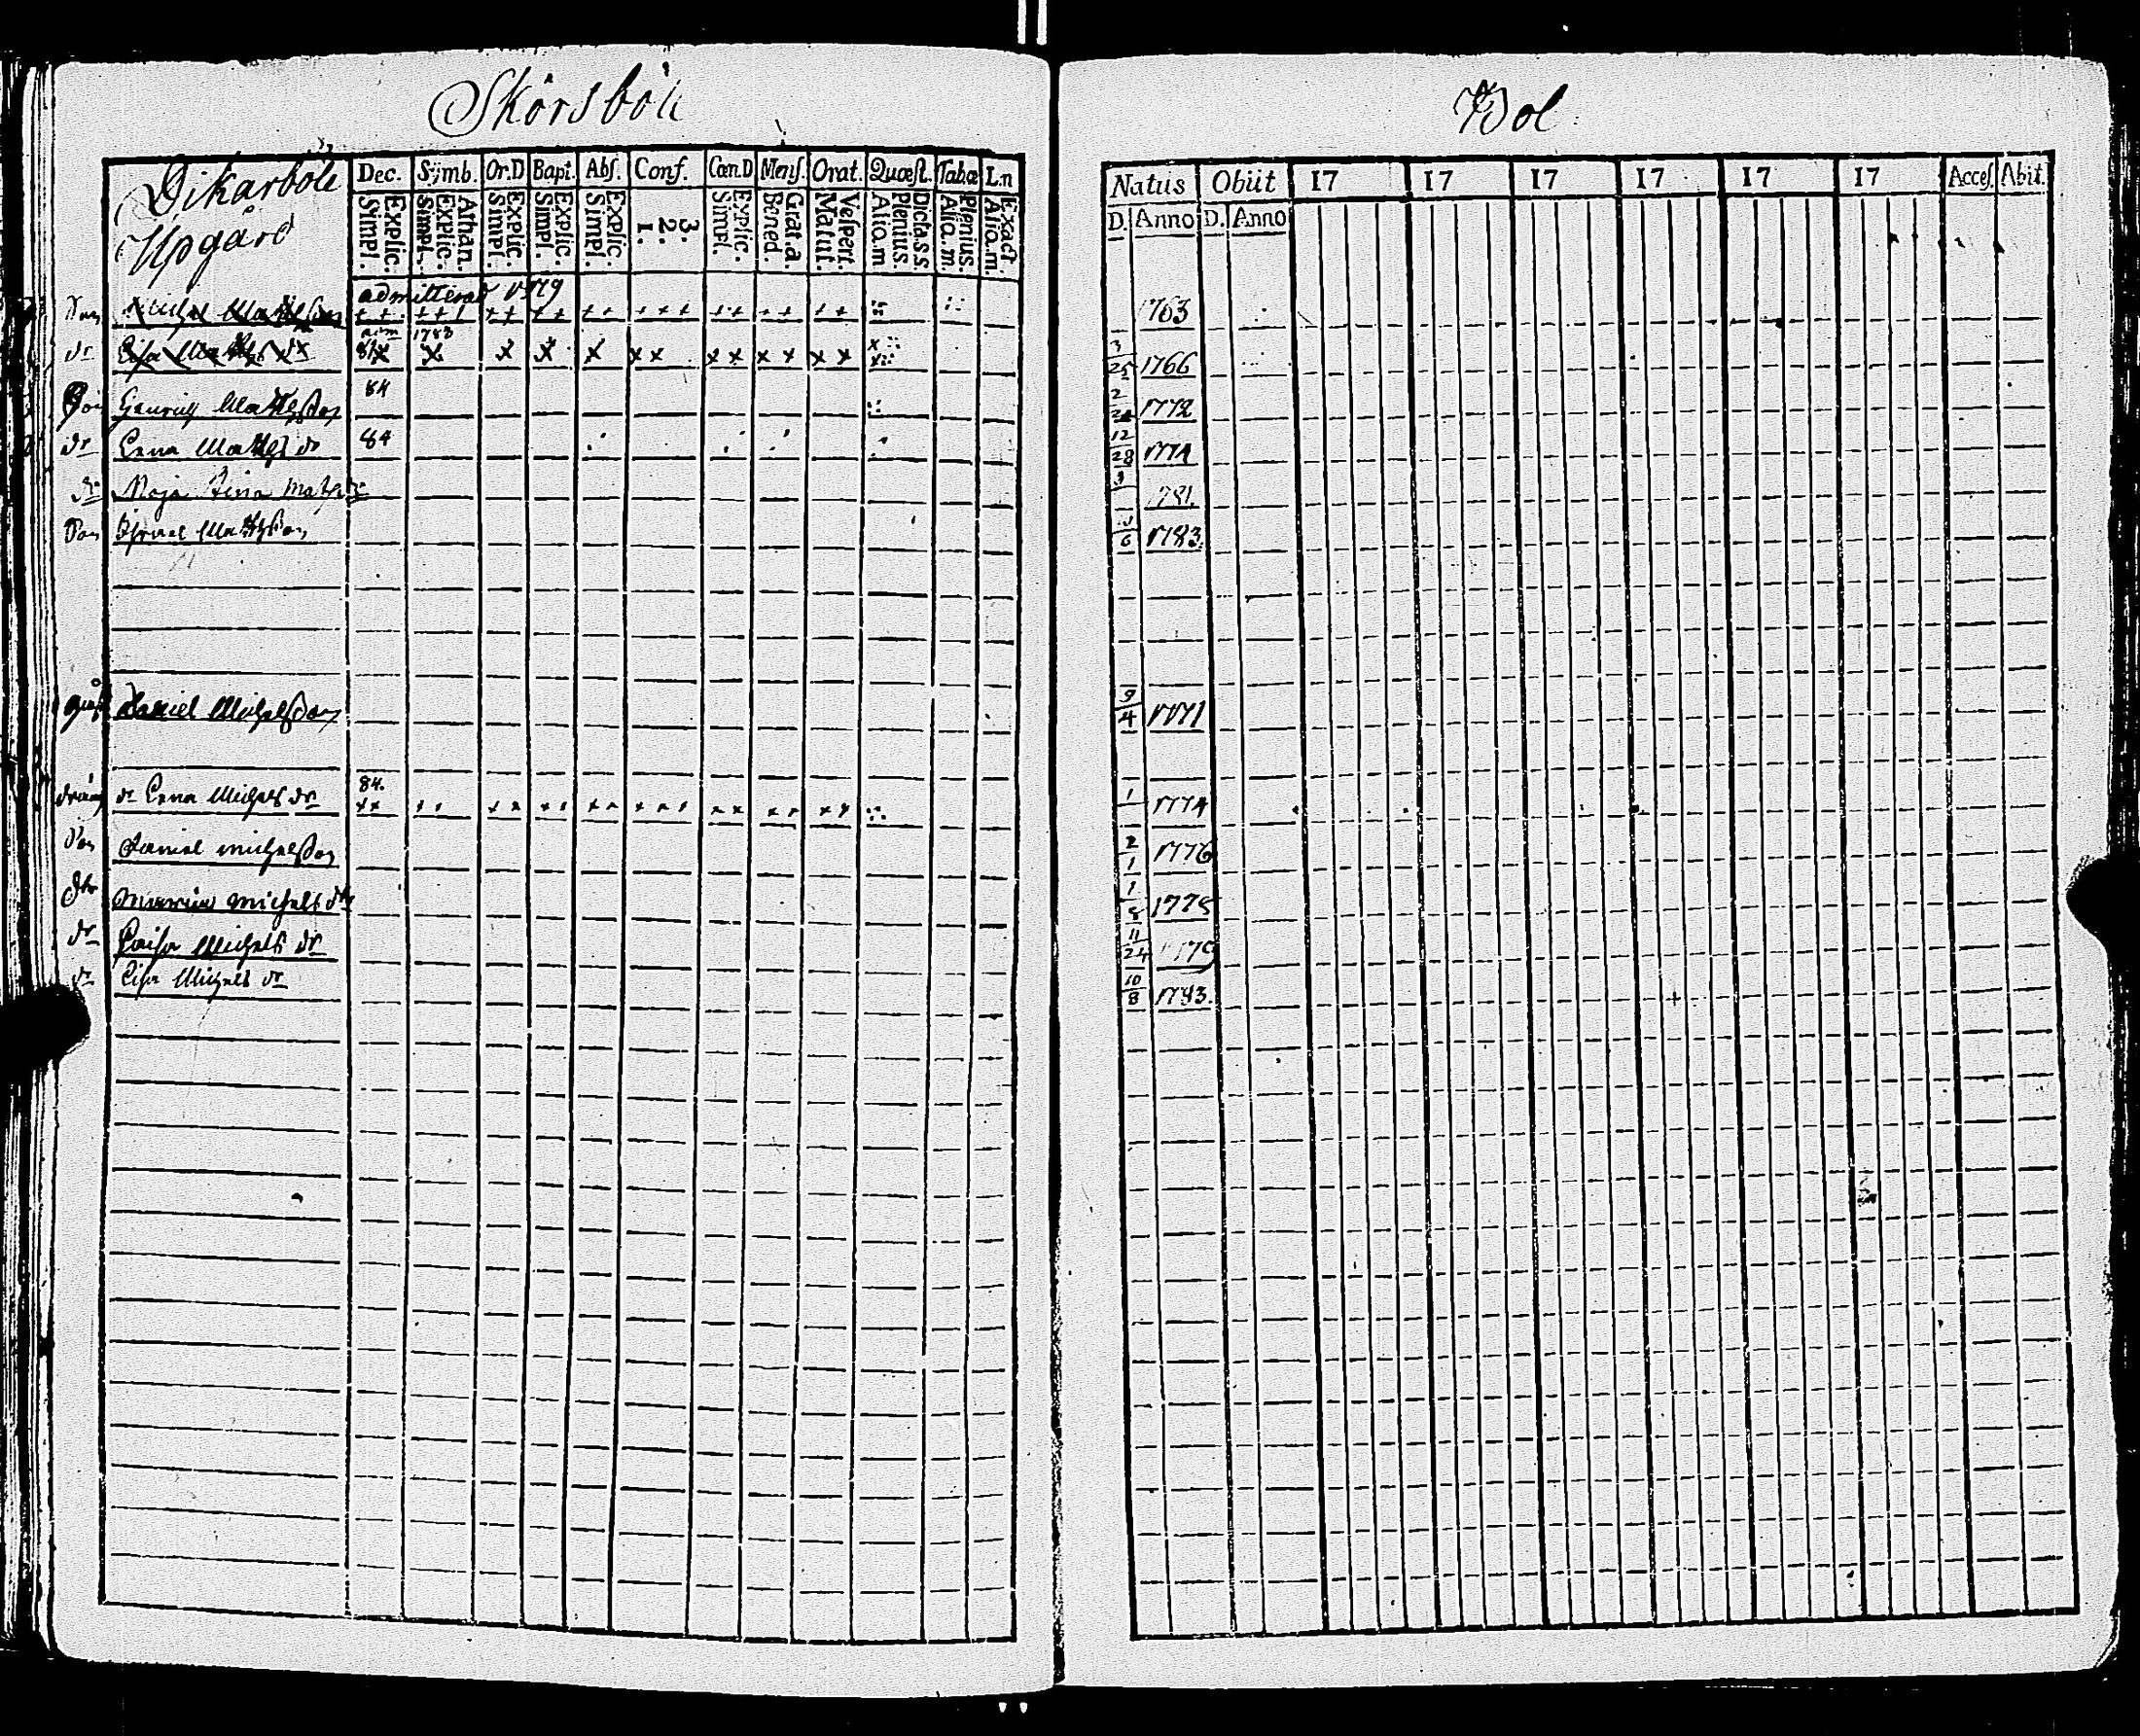 Skörsböle
Bol
Dikarböle
Upgård
Dec. Symb. Or.D Bapt. Abſ. Conf. Cœn.D Menſ. Orat. Quæſt. Tabæ L.n
Explic. Simpl. Athan. Explic. Simpl. Explic. Simpl. Explic. Simpl. Explic. Simpl. 3. 2. 1. Explic. Simpl. Grat.a. Bened. Veſpert. Matut. Dicta.s.s. Plenius. Alio.m Plenius. Alio.m. Exact. Alio.m.
Natus Obiit 17 17 17 17 17 17 Acceſ. Abit.
D. Anno D. Anno
admitterad 1779
Son Michel Mattsson 1763
adm 1783
dr Lisa Matts dr 81 3/25 1766
Son Henrich Mattsson 84 2 1772
dr Lena Matts dr 84 12/28 1774
dr Maja Stina Mats dr 1781.
Son Israel Mattsson 6 1783
Daniel Michelsson 9/4 1771
dr Lena Michels dr 84. 1 1774
Son Daniel michelsson 2/1 1776
dtr Maria michels dtr 1/8 1778
dr Caisa Michels dr 11/24 1779
dr Lisa Michels dr 10/8 1783.